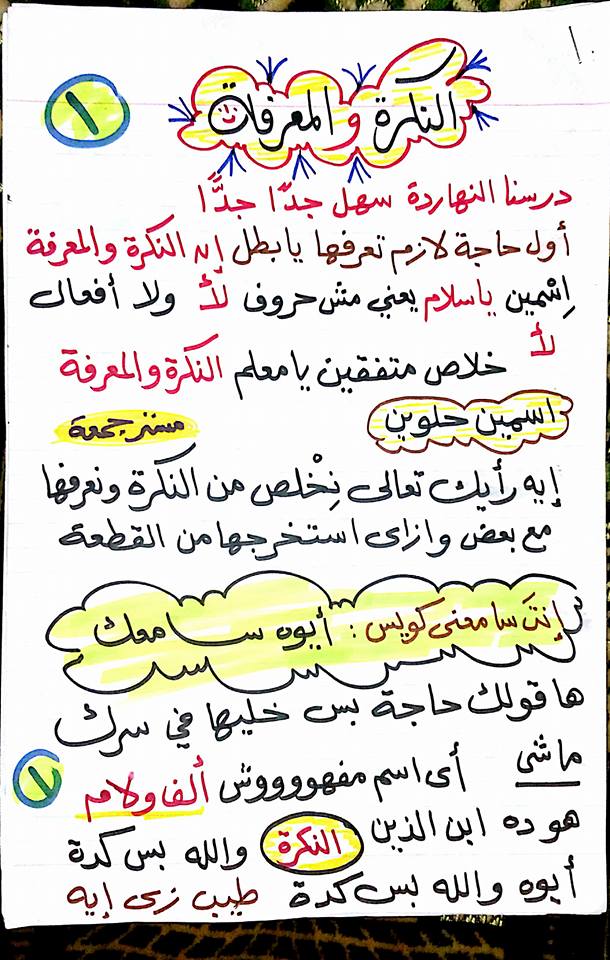 ١٠
النكرة والمعرفات
١
درسنا النهاردة سهل جدًّا جدًّا
أول حاجة لازم تعرفها يا بطل إن النكرة والمعرفة
إِسْمين ياسلام يعني مش حروف لأ ولا أفعال
لأ خلاص متفقين يا معلم النكرة والمعرفة
اسمين حلوين مستر جمعة
إيه رأيك تعالى نِخْلص من النكرة ونعرفها
مع بعض وازاى استخرجها من القطعة
إنتَ سامعنى كويس: أيوه سامعك
ها قولك حاجة بس خليها في سرك
ماشى أى اسم مفهوووووش ألف ولام
١
هو ده ابن الذين النكرة والله بس كدة
أيوه والله بس كدة طيب زى إيه